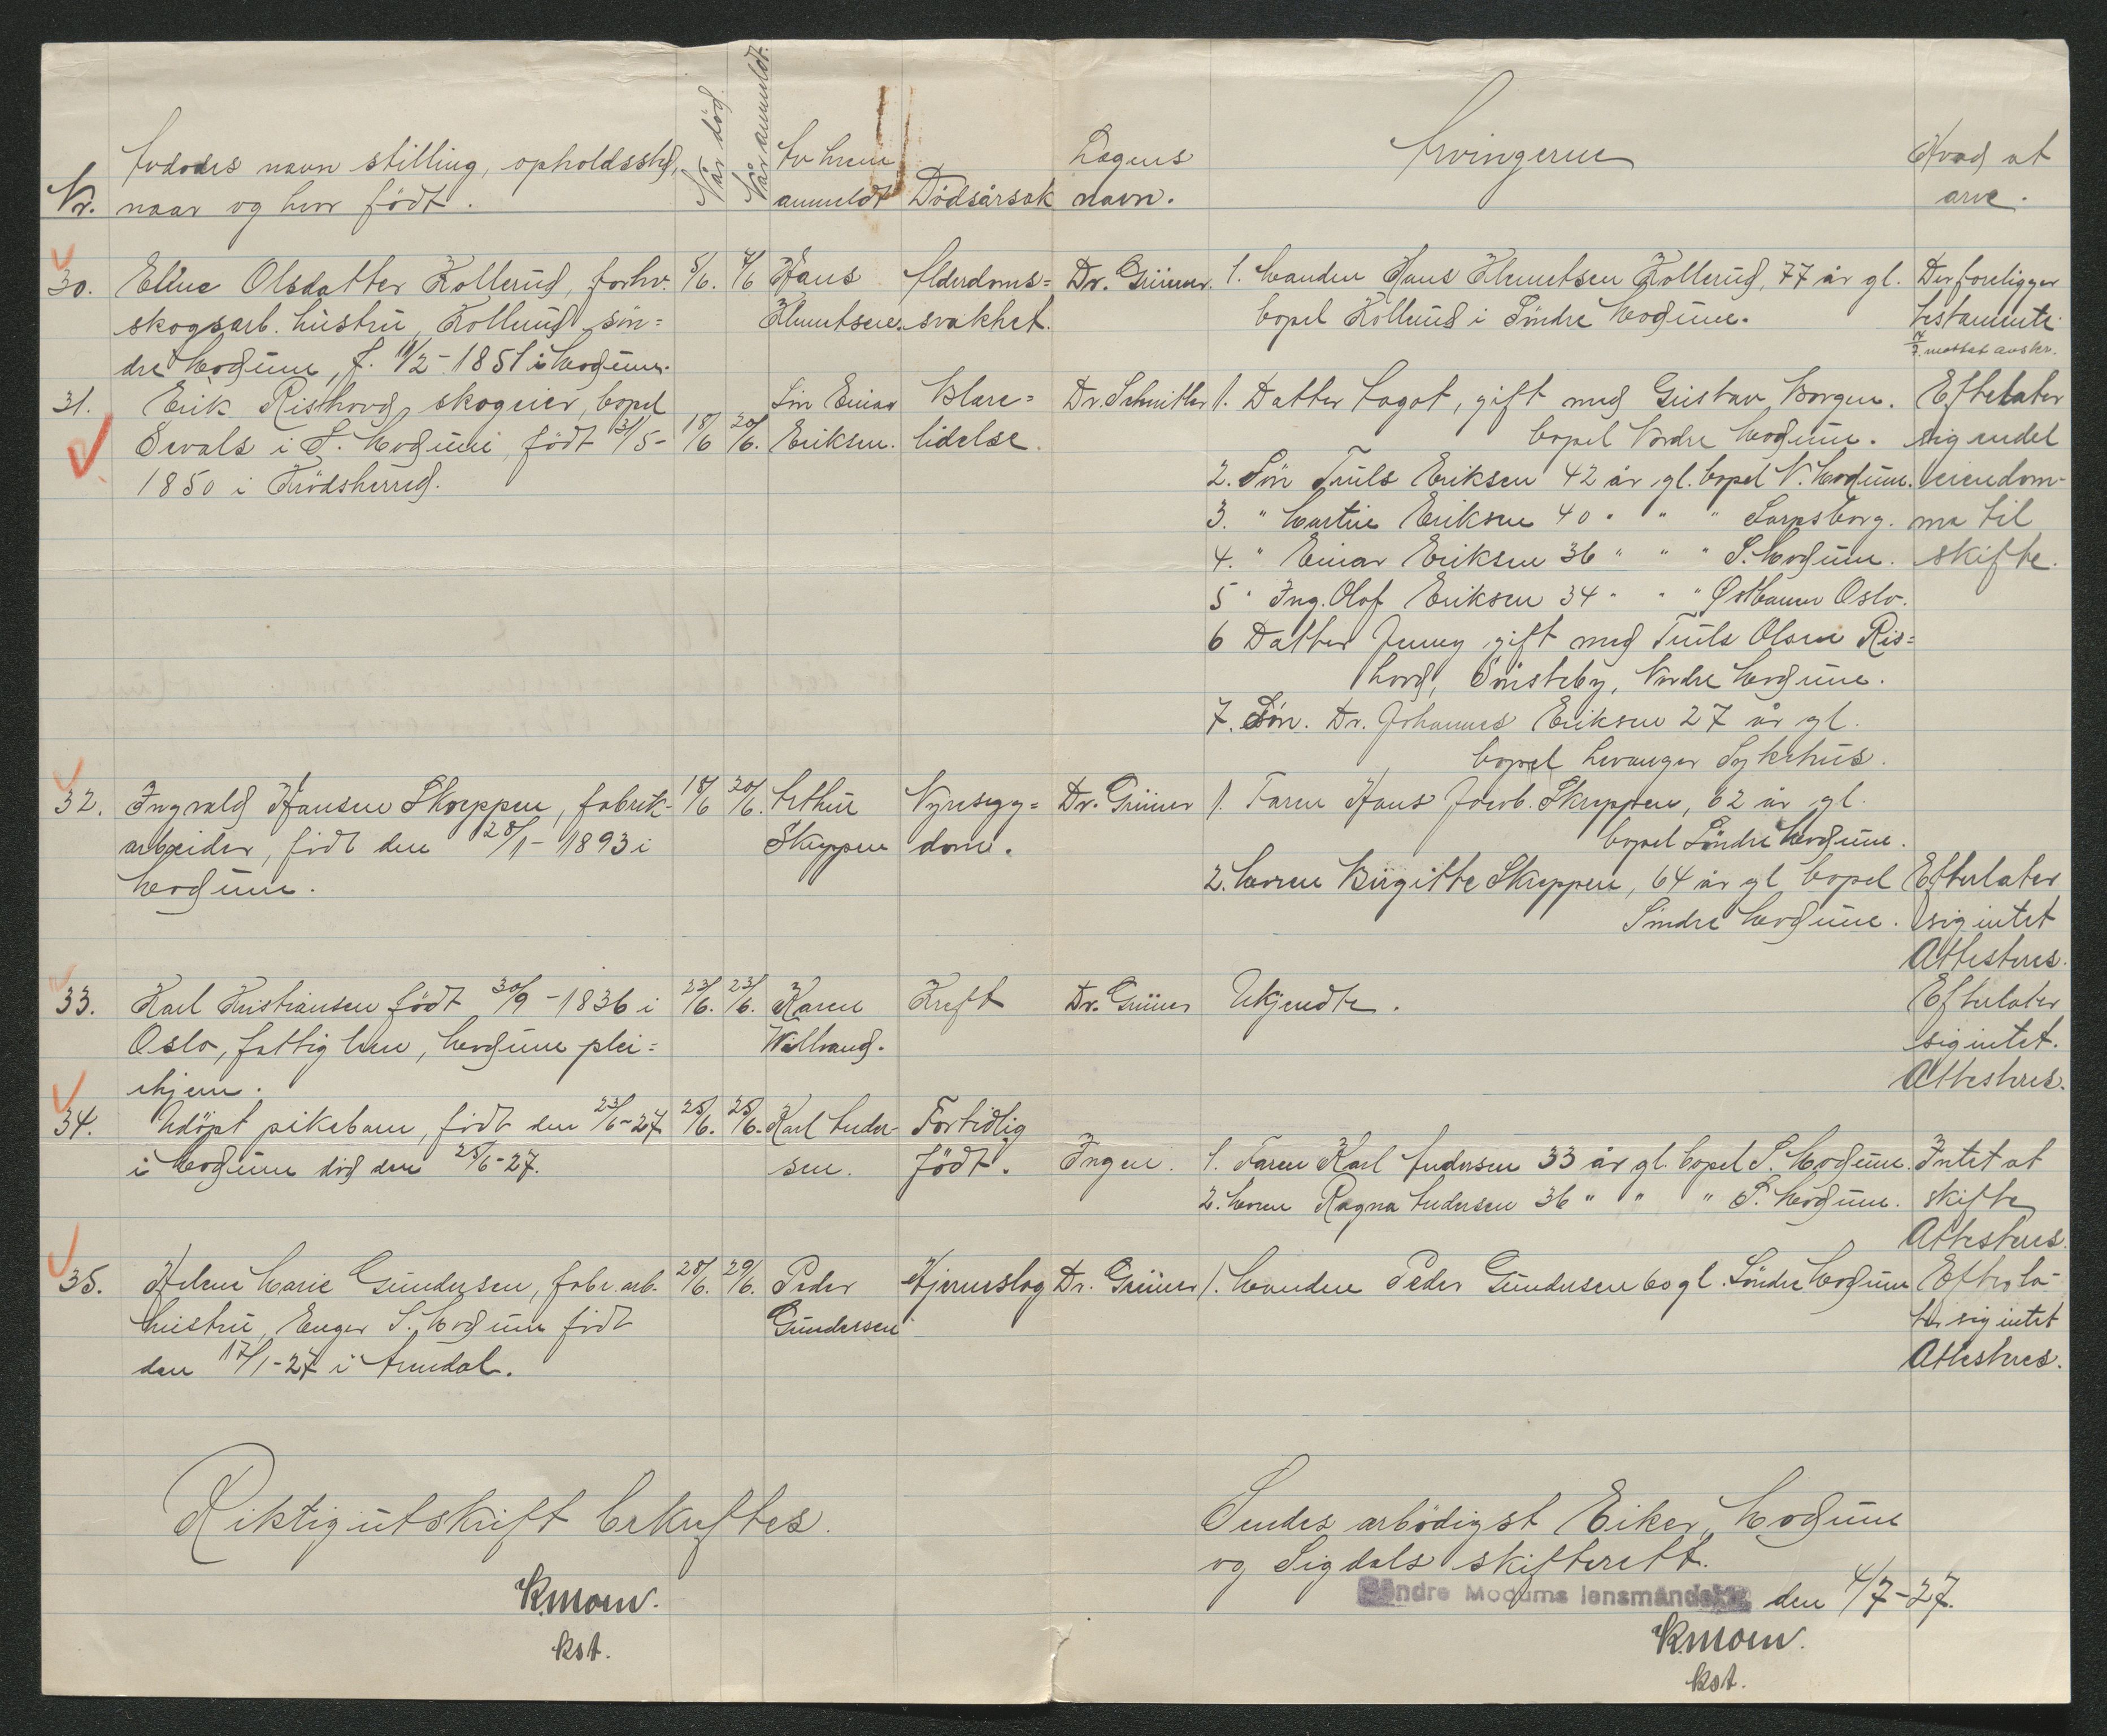 Nr. Avdødes navn stilling, opholdssted, naar og hvor født.
Når død.
Når anmeldt.
Av hvem anmeldt
Dödsårsak
Lægens navn.
Arvingerne
Hvad at arve.
30. Elline Olsdatter Kollerud, forhv.
skogsarb. hustru, Kollerud søn=
dre Modum, f. 11/2-1851 i Modum.
5/6. 7/6
Hans
Klemetsen.
Alderdoms=
svakhet.
Dr. Grüner.
1. Manden Hans Klemetsen Kollerud, 77 år gl.
bopel Kollerud i Söndre Modum.
Der foreligger
testamente
mottat avskr.
31. Erik Rishovd, skogeier, bopel
i S. Modum, født 31/5-
1850 i Krödsherred.
18/6 20/6.
Sön Einar
Eriksen.
Blære=
lidelse.
Dr. Schmitler
1. Datter Aagot, gift med Gustav Borgen.
bopel Nordre Modum.
2. Sön Truls Eriksen 42 år gl. bopel N. Modum.
3. " Martin Eriksen 40 " " " Sarpsborg.
4. " Einar Eriksen 36 " " " S. Modum.
5 " Ing. Olof Eriksen 34 " " " Østbanen Oslo.
6 Datter Jenny gift med Truls Olsen Ris=
hovd, Sönsteby, Nordre Modum.
7. Sön. Dr. Johannes Eriksen 27 år gl.
bopel Levanger Sykehus.
Efterlater
sig endel
eiendom-
me til
skifte.
32. Ingvald Hansen Skreppen, fabrik-
arbeider, födt den 28/1-1893 i
Modum.
18/6 20/6.
Arthur
Skreppen
Nyresyg=
dom.
Dr. Grüner
1. Faren Hans Jacob. Skreppen, 62 år gl.
bopel Söndre Modum.
2. Moren Birgitte Skreppen, 64 år gl bopel
Söndre Modum.
Efterlater
sig intet
Attesteres.
33. Karl Kristiansen födt 30/9-1836 i
Oslo, fattiglem, Modum plei=
ehjem.
23/6. 23/6.
Karen
Kreft
Dr. Grüner
Ukjendte.
Efterlater
sig intet.
Attesteres.
34. Udöpt pikebarn, födt den 23/6-27
i Modum död den 25/6-27.
25/6. 25/6.
Karl Ander-
sen.
Fortidlig
födt.
Ingen.
1. Faren Karl Andersen 33 år gl. bopel S. Modum.
2. Moren Ragna Andersen 36 " " " S. Modum.
Intet at
skifte
Attesteres.
35. Helene Marie Gundersen, fabr. arb.
hustru, Enger S. Modum født
den 17/1-27 i Arendal.
28/6. 29/6.
Peder
Gundersen
Hjerneslag
Dr. Grüner
1. Manden Peder Gundersen 60 gl. Söndre Modum
Efterla-
ter sig intet
Attesteres.
Riktig utskrift bekreftes.
K. Moen.
kst.
Sendes arbödigst Eiker, Modum
og Sigdals skifterett.
Søndre Modums lensmandsktr. den 4/7-27.
K. Moen.
kst.